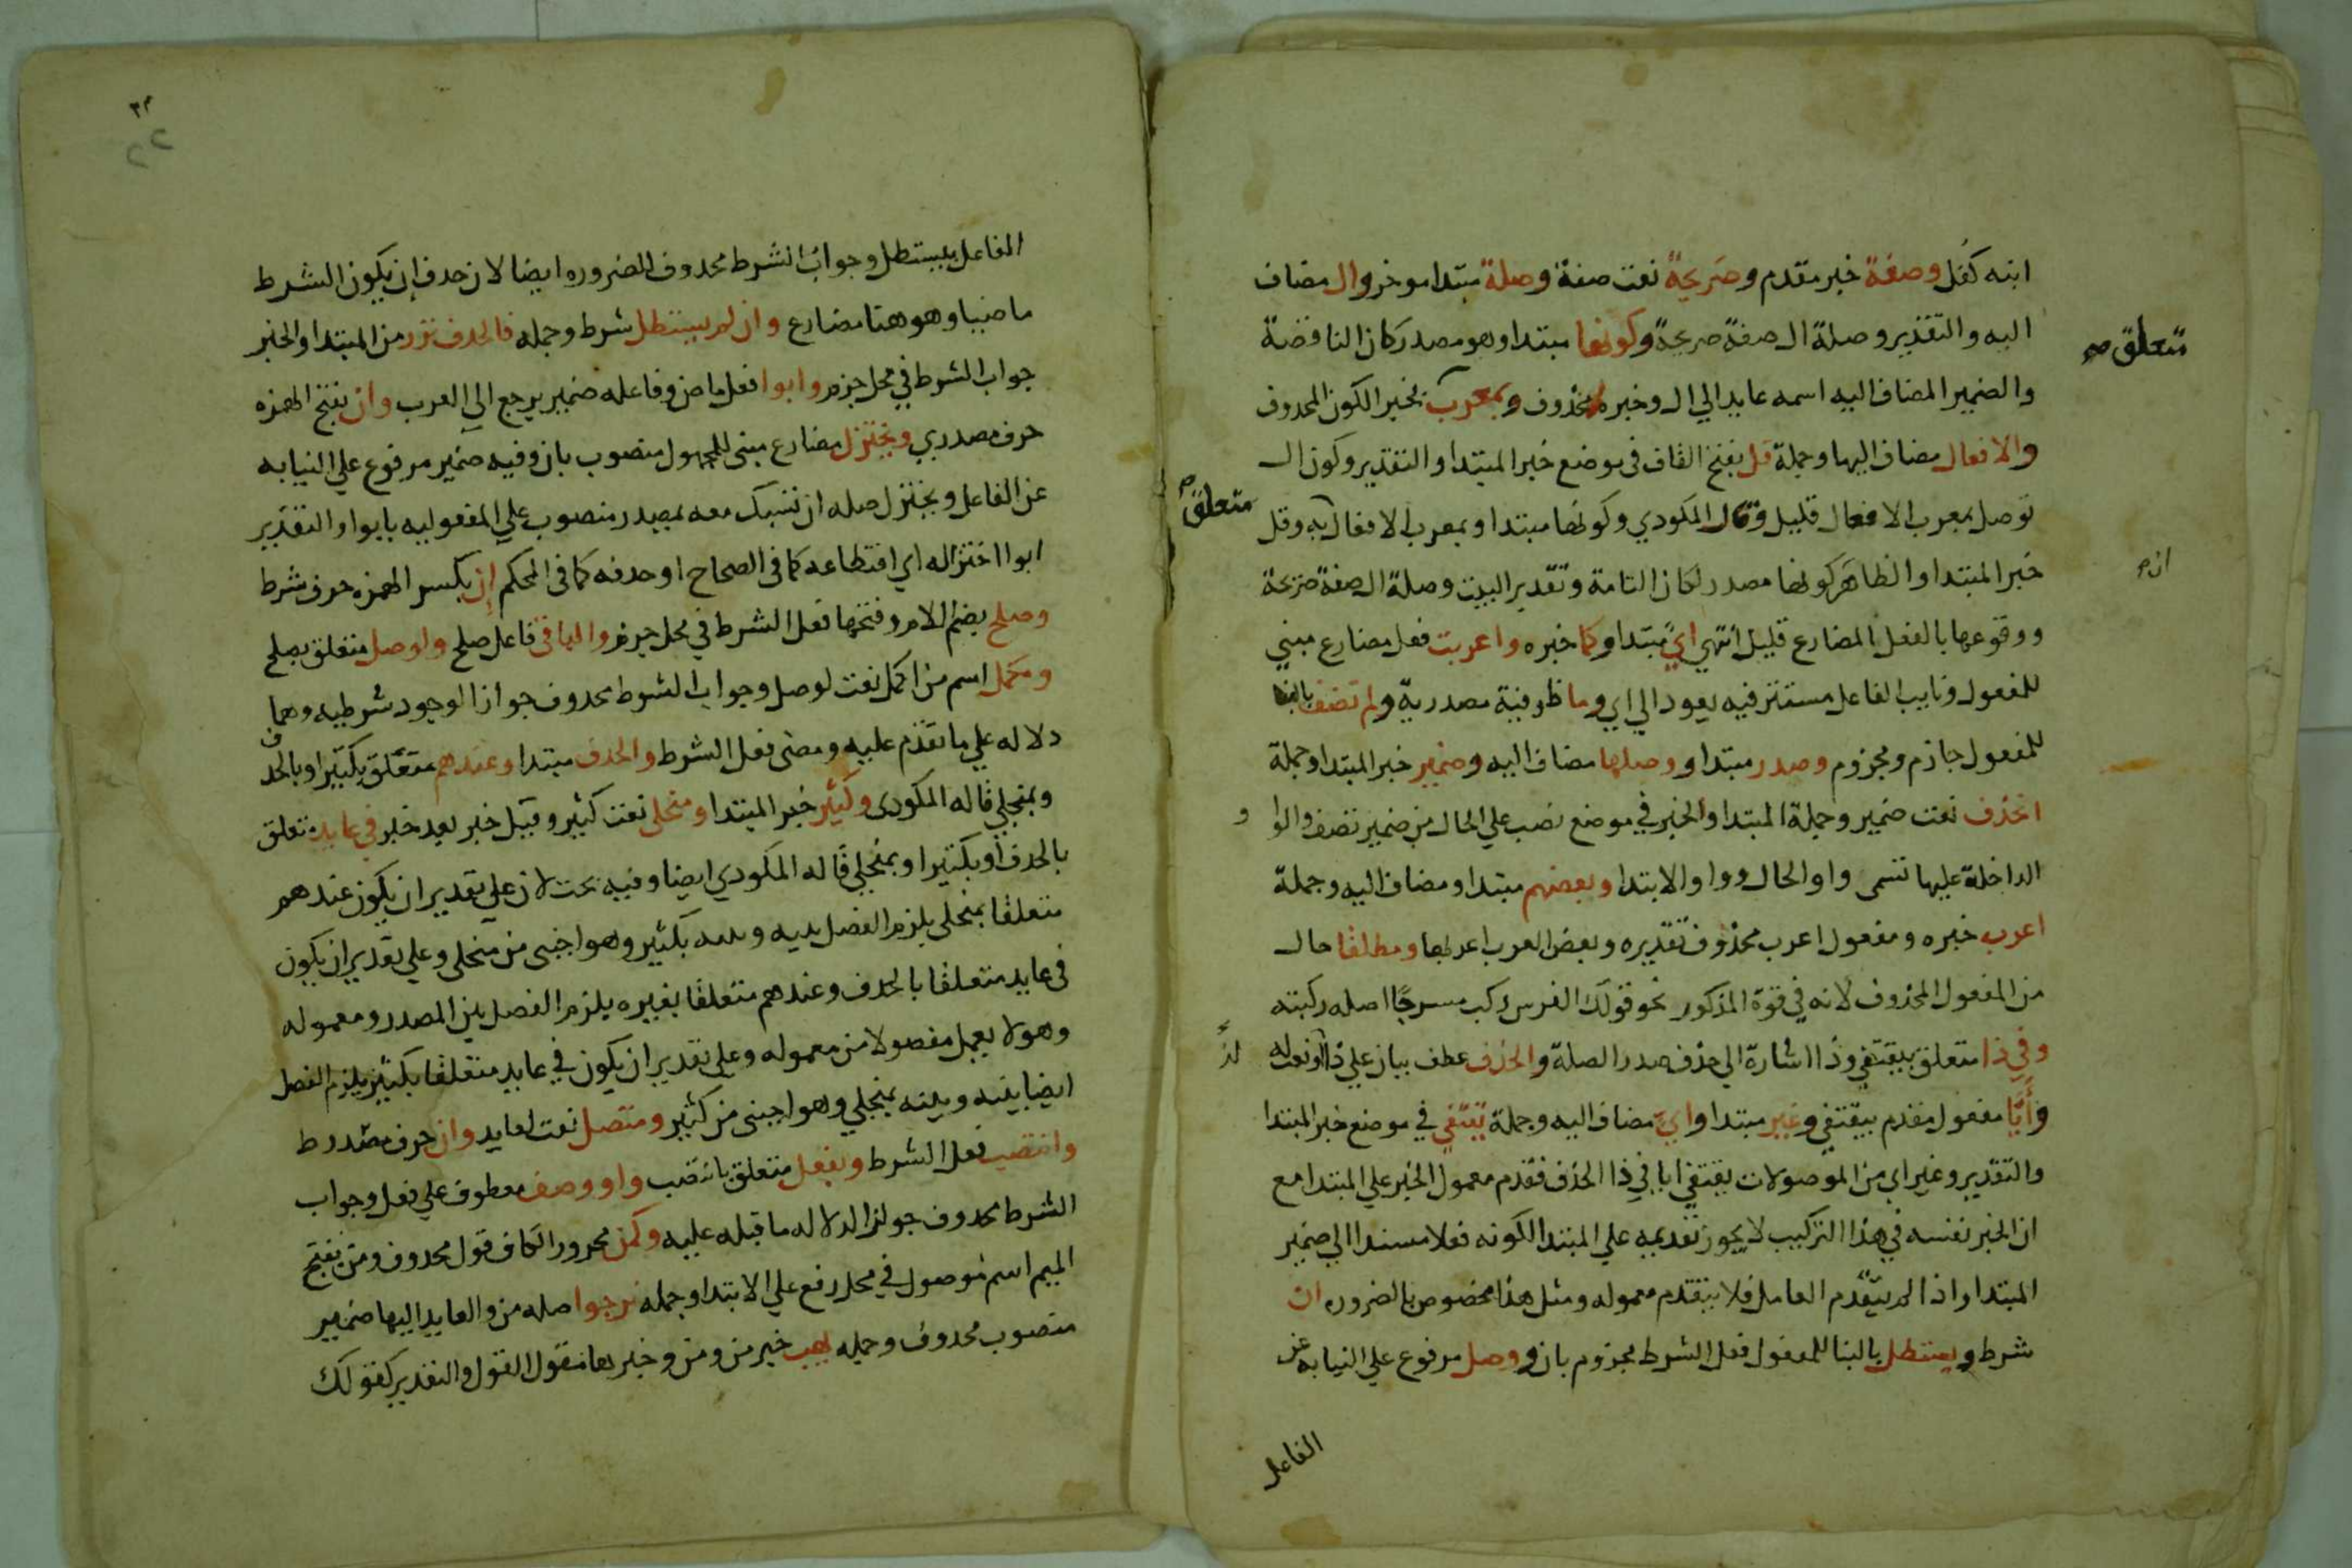 ابنه كفل وصفة خبر مقدم وصريحة نعت صفة وصلة مبتدا موخر وال مضاف
اليه والتقدير وصلة ال صفة صريحة وكونها مبتدا وهو مصدر كان الناقصة
متعلق صح
والضمير المضاف اليه اسمه عايد الي ال وخبره محذوف وبمعرب بخبر الكون المحدوف
والافعال مضاف اليها وجملة قل بفتح القاف في موضع خبر المبتدا والتقدير وكون ال
توصل بمعرب الافعال قليل وقال المكودي وكونها مبتدا وبمعرب الافعال به وقل
متعلق
خبر المبتدا والظاهر كونها مصدر لكان التامة وتقدير البيت وصلة ال صفة صريحة
ووقوعها بالفعل المضارع قليل انتهي اي مبتدا وكما خبره واعربت فعل مضارع مبني
للمفعول ونايب الفاعل مستتر فيه يعود الي اي وما ظرفية مصدرية ولم تضف بالبنا
للمفعول جازم ومجزوم وصدر مبتدا ووصلها مضاف اليه وضمير خبر المبتدا وجملة
انحذف نعت ضمير وجملة المبتدا والخبر في موضع نصب علي الحال من ضمير تضف والوا و
الداخلة عليها تسمى واو الحال وواو الابتدا وبعضهم مبتدا ومضاف اليه وجملة
اعرب خبره ومفعول اعرب محذوف تقديره وبعض العرب اعربها ومطلقا حال
من المفعول المحذوف لانه في قوة المذكور نحو قولك الفرس ركب مسرجا اصله ركبته
وفي ذا متعلق بيقتفي وذا اشارة الي حذف صدر الصلة والحذف عطف بيان علي ذا او نعت له
وأيا مفعول مقدم بيقتفي وغير مبتدا واي مضاف اليه وجملة يقتفي في موضع خبر المبتدا
والتقدير وغير اي من الموصولات يقتفي ايا في ذا الحذف فقدم معمول الخبر علي المبتدا مع
ان الخبر نفسه في هذا التركيب لا يجوز تقديمه علي المبتدا لكونه فعلا مسندا الي ضمير
المبتدا واذا لم يتقدم العامل فلا يتقدم معموله ومثل هذا مخصوص بالضروره ان
شرط ويستطل بالبنا للمفعول فعل الشرط مجزوم بان ووصل مرفوع علي النيابه عن
الفاعل
الفاعل بيستطل وجواب الشرط محدوف للضروره ايضا لان حدف ان يكون الشرط
ماضيا وهو هنا مضارع وان لم يستطل شرط وجمله فالحدف نزر من المبتدا والخبر
جواب الشرط في محل جزم وابوا فعل ماض وفاعله ضمير يرجع الي العرب وان بفتح الهمزه
حرف مصدري ويختزل مضارع مبني للمجهول منصوب بان وفيه ضمير مرفوع علي النيابه
عن الفاعل ويختزل صله ان تنسبك معه بمصدر منصوب علي المفعوليه بابوا والتقدير
ابوا اختزاله اي اقتطاعه كما في الصحاح او حدفه كما في المحكم إن بكسر الهمزه حرف شرط
وصلح بضم اللام وفتحها فعل الشرط في محل جزم والباقي فاعل صلح ولوصل متعلق بصلح
ومكمل اسم من اكمل نعت لوصل وجواب الشرط محدوف جوازا لوجود شرطيه وهما
دلاله علي ما تقدم عليه ومضى فعل الشرط والحدف مبتدا وعندهم متعلق بكثيرا وبالحد ف
وبمنجلي قاله المكودي وكثير خبر المبتدا ومنجلى نعت كثير وقيل خبر بعد خبر في عايد متعلق
بالحدف او بكثيرا وبمنجلي قاله المكودي ايضا وفيه بحث لان علي تقدير ان يكون عندهم
متعلقا بمنجلي يلزم الفصل بينه وبينه بكثير وهو اجنبي من منجلي وعلي تقدير ان يكون
في عايد متعلقا بالحدف وعندهم متعلقا بغيره يلزم الفصل بين المصدر ومعموله
وهو لا يعمل مفصولا من معموله وعلي تقدير ان يكون في عايد متعلقا بكثير يلزم الفصل
ايضا بينه وبينه بمنجلي وهو اجنبى من كثير ومتصل نعت لعايد وان حرف شرط
وانتصب فعل الشرط وبفعل متعلق بانتصب واو وصف معطوف علي فعل وجواب
الشرط محدوف جوازا لدلاله ما قبله عليه وكمن مجرور الكاف قول محدوف ومن بفتح
الميم اسم موصول في محل رفع علي الابتدا وجمله نرجوا صله من والعايد اليها ضمير
منصوب محدوف وجمله يهب خبر من ومن وخبرها مقول القول والتقدير كقولك